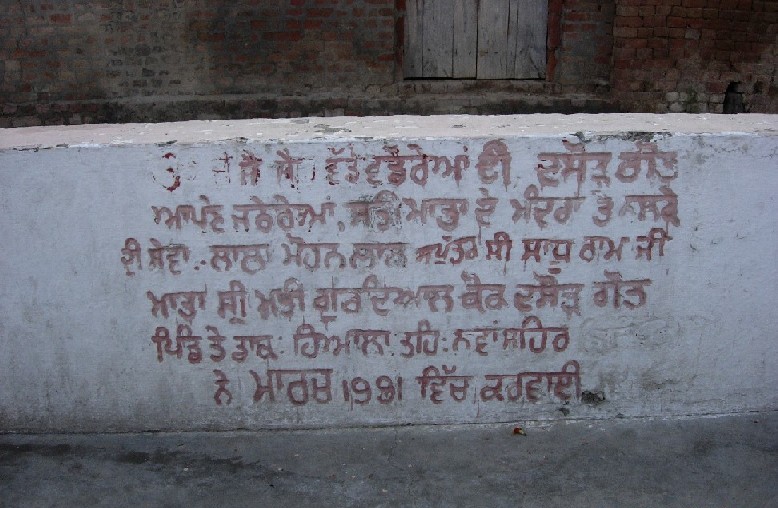 ਜੈ ਵੱਡੇ ਵਡੇਰੇਆਂ ਦੀ ਦਸੌੜ ਗੋਤ
ਆਪਣੇ ਜਠੇਰੇਆਂ, ਸਤੀ ਮਾਤਾ ਦੇ ਮੰਦਰਾਂ ਤੇ
ਦੀ ਸੇਵਾ. ਲਾਲਾ ਮੋਹਨ ਲਾਲ ਸਪੱਤਰ ਸ੍ਰੀ ਸਾਧੂ ਰਾਮ ਜੀ
ਮਾਤਾ ਸ੍ਰੀ ਮਤੀ ਗੁਰਦਿਆਲ ਕੌਰ ਦਸੌੜ ਗੋਤ
ਪਿੰਡ ਤੇ ਡਾਕ. ਹਿਆਲਾ ਤਹਿ: ਨਵਾਂਸ਼ਹਿਰ
ਨੇ ਮਾਰਚ 1991 ਵਿੱਚ ਕਰਵਾਈ